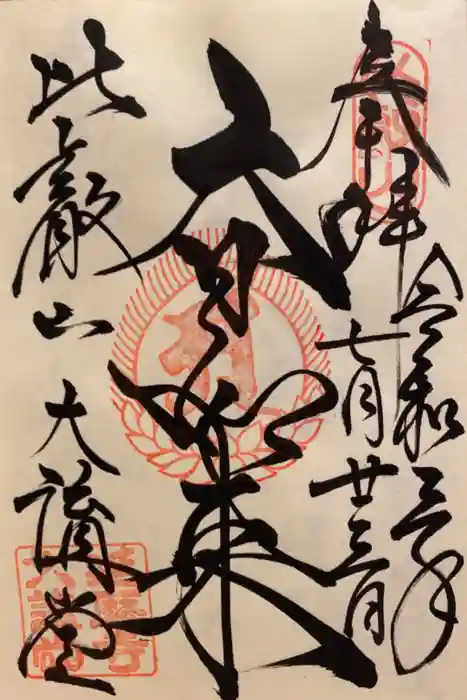 奉拝
令和三年
七月廿三日
大日如来
比叡山 大講堂